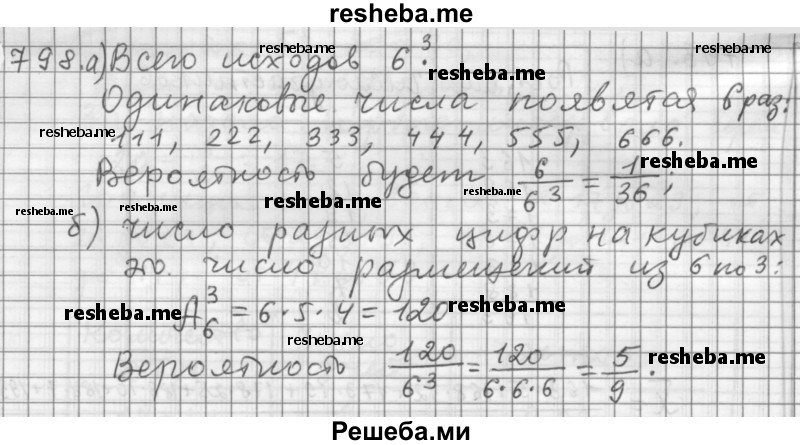 resheba.me
798. а) Всего исходов 6³. resheba.me resheba.me resheba.me
Одинаковые числа появятся 6 раз:
resheba.me 111, 222, 333, 444, 555, 666.
Вероятность будет 6/6³ = 1/36; resheba.me resheba.me
resheba.me resheba.me resheba.me
б) число разных цифр на кубиках
это число размещений из 6 по 3:
resheba.me A₆³ = 6·5·4 = 120 resheba.me
resheba.me
Вероятность 120/6³ = 120/6·6·6 = 5/9. resheba.me
Решеба.ми